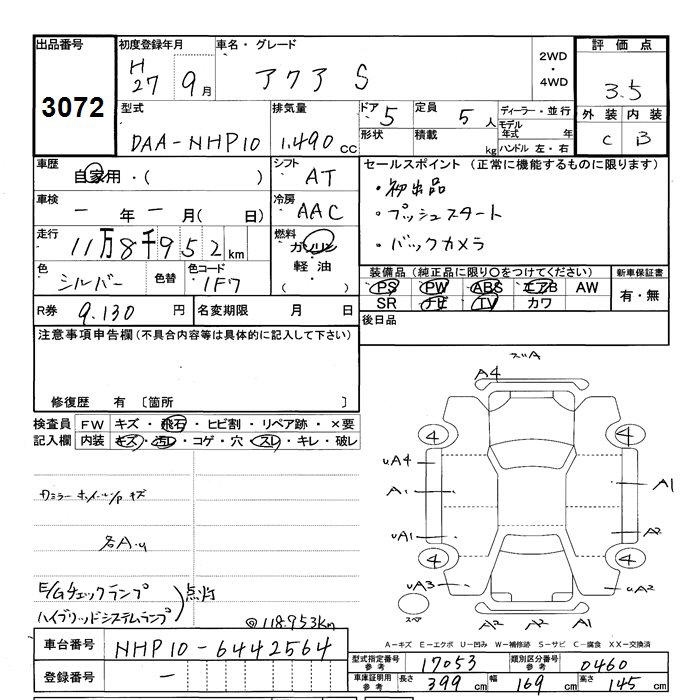 出品番号 初度登録年月 車名・グレード 2WD・4WD 評価点
3072 H27 9月 アクア S 3.5
型式 排気量 ドア 5 定員 5人 ディーラー・並行 外装 内装
DAA-NHP10 1.490cc 形状 積載 kg モデル年式 年 C B
ハンドル 左・右
車歴 自家用・( ) シフト AT セールスポイント (正常に機能するものに限ります)
車検 ー年ー月( 日) 冷房 AAC ・初出品
・プッシュスタート
走行 11万8千952km 燃料 ガソリン 軽油 ( ) ・バックカメラ
色 シルバー 色替 色コード 1F7 装備品 (純正品に限り○をつけてください) 新車保証書
PS PW ABS エアB AW 有・無
R券 9.130円 名変期限 月 日 SR ナビ TV カワ
注意事項申告欄 (不具合内容等は具体的に記入して下さい) 後日品
修復歴 有 〔箇所 〕
検査員記入欄 FW キズ・飛石・ヒビ割・リペア跡・×要
内装 キズ・汚レ・コゲ・穴・スレ・キレ・破レ
A4
4 4
uA4
A1 A1
uA1 A2
4 4
uA3 uA2
スペア A2 A2 A1
ホイール/P キズ
各A・u
E/Gチェックランプ
ハイブリッドシステムランプ 点灯
@118.953km
A－キズ E－エクボ U－凹み W－補修跡 S－サビ C－腐食 XX－交換済
車台番号 NHP10-6442564
型式指定番号 参考 17053 類別区分番号 参考 0460
登録番号 ー 車庫証明用 参考 長さ 399cm 幅 169cm 高さ 145cm